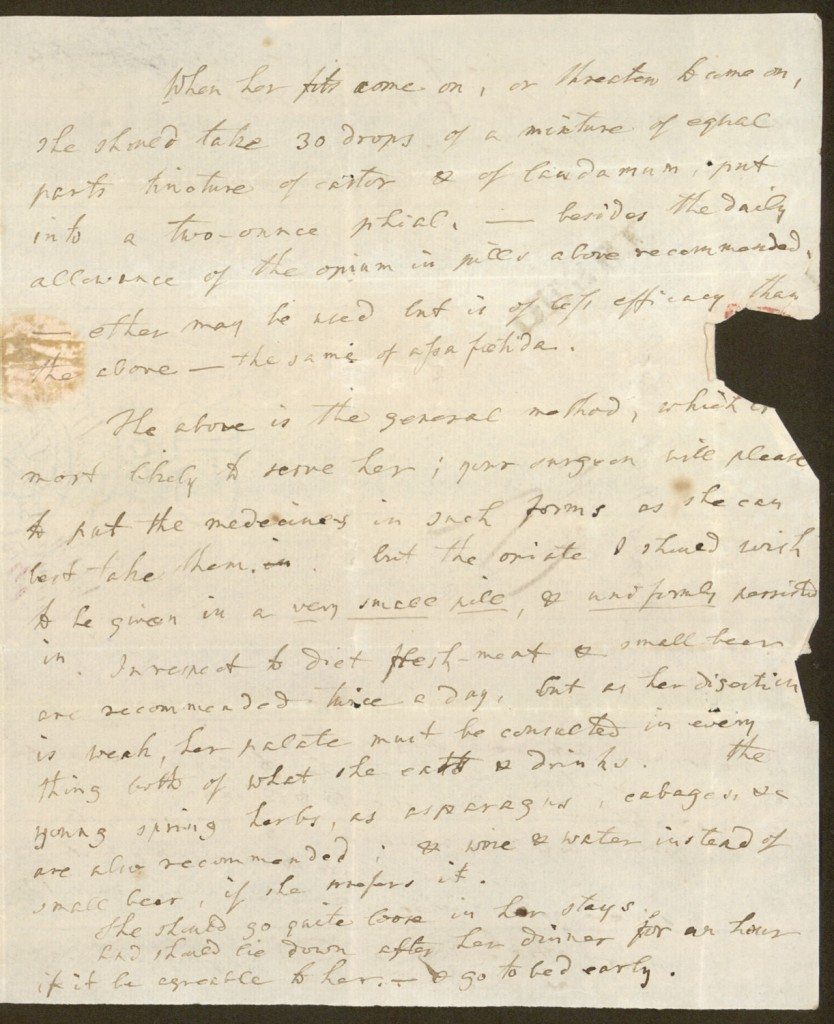 When her fits come on, or threaten to come on,
she should take 30 drops of a mixture of equal
parts tincture of castor & of laudamum, put
into a two-ounce phial. — besides the daily
allowance of the opium in pills above recommended.
— ether may be used but is of less efficacy than
the above — the same of assa foetida.
The above is the general method, which is
most likely to serve her; your surgeon will please
to put the medecines in such forms as she can
best take them. in. but the opiate I should wish
to be given in a very small pill, & uniformly persisted
in. In respect to diet flesh-meat & small beer
are recommended twice a day, but as her digestion
is weak, her palate must be consulted in every
thing both of what she eats & drinks. The
young spring herbs, as asparagus, cabages, &c
are also recommended; & wine & water instead of
small beer, if she prefers it.
She should go quite loose in her stays.
and should lie down after her dinner for an hour
if it be agreable to her. — & go to bed early.